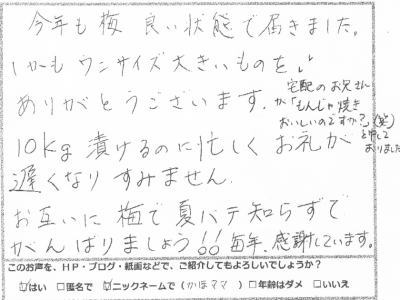 今年も梅 良い状態で届きました。
しかもワンサイズ大きいものを♪
ありがとうございます。
宅配のお兄さん
が「もんじゃ焼き
おいしいのですか?」(笑)
と申して
おりました
10kg 漬けるのに忙しくお礼が
遅くなりすみません。
お互いに梅で夏バテ知らずで
がんばりましょう!! 毎年、感謝しています。
このお声を、HP・ブログ・紙面などで、ご紹介してもよろしいでしょうか?
☑はい □匿名で ☑ニックネームで(かほママ) □年齢はダメ □いいえ